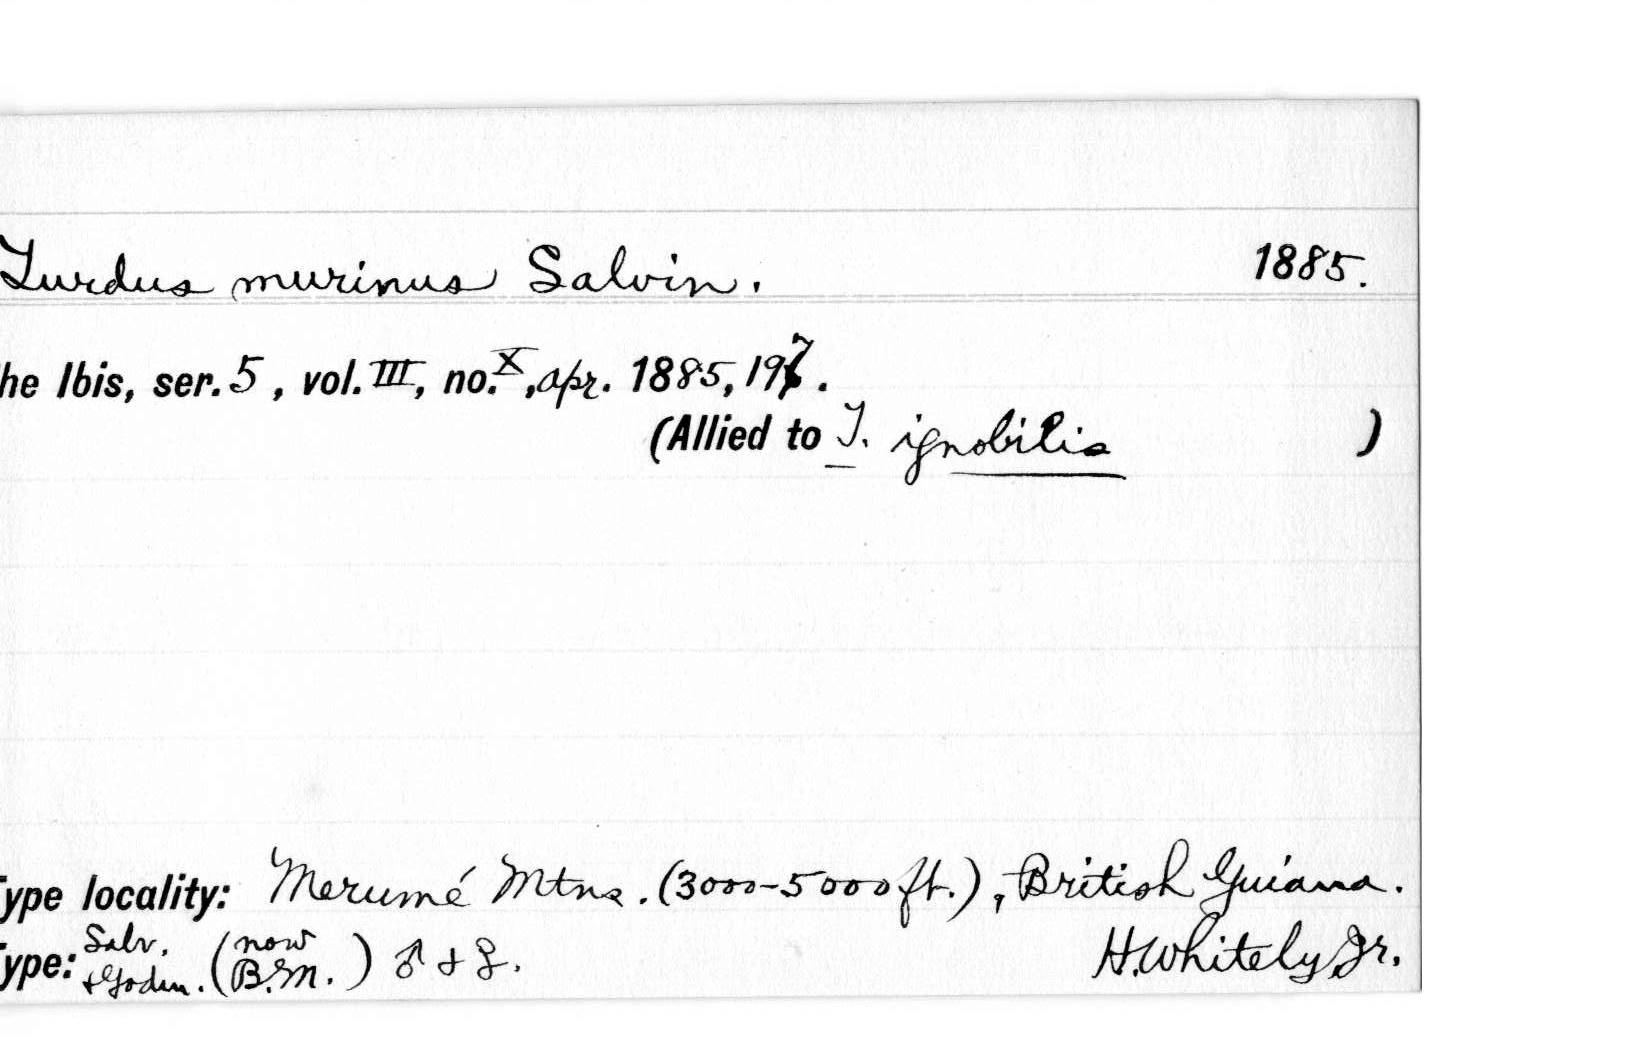 Turdus murinus Salvin. 1885.
he Ibis, ser. 5, vol. III, no. X, apr. 1885, 197.
(Allied to T. ignobilis )
Type locality: Merumé Mtns. (3000-5000 ft.), British Guiana.
Type: Salv. + Godm. (now B.M.) ♂ + ♀. H. Whitely, Jr.